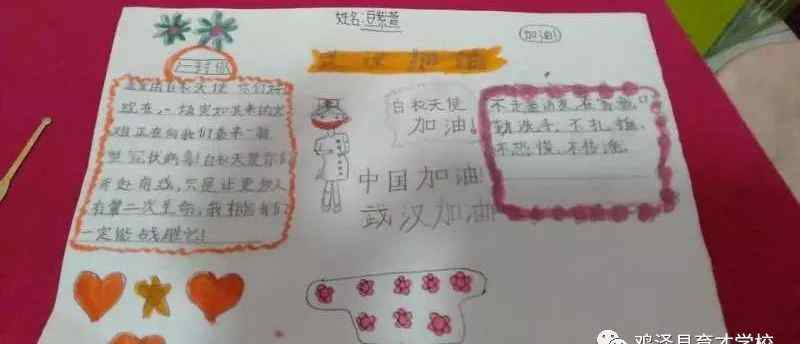 姓名:
加油!
一封信
武汉加油
白衣天使 你们好
现在,一场突如其来的灾
难正在向我们袭来一新
型冠状病毒!白衣天使你们
奔赴前线,只是让更多人
有第二次生命,我相信我们
一定能战胜它!
白衣天使
加油!
中国加油!
武汉加油
不走亲访友,
勤洗手,不扎堆,
不恐慌,不传谣。
鸡泽县育才学校